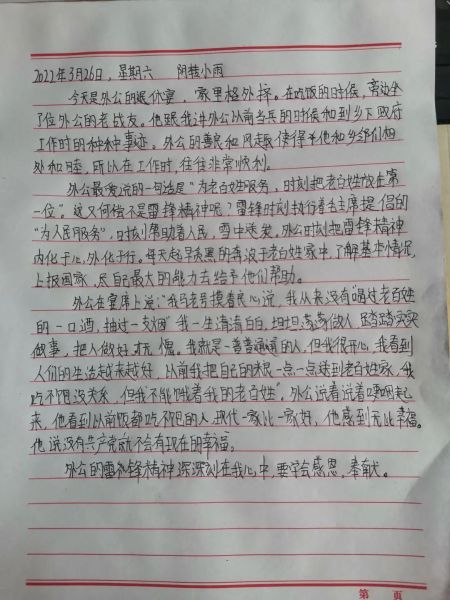 2022年3月26日，星期六 阴转小雨
今天是外公的退休宴，家里格外择。在吃饭的时候，旁边坐
了位外公的老战友。他跟我讲外公以前当兵的时候和到乡下政府
工作时的种种事迹，外公的善良和风趣使得他和乡邻们相
处和睦，所以在工作时，往往非常顺利。
外公最爱说的一句话是"为老百姓服务，时刻把老百姓放在第
一位"。这又何偿不是雷锋精神呢？雷锋时刻执行着毛主席提倡的
"为人民服务"，时刻帮助着人民，雪中送炭。外公时刻把雷锋精神
内化于心，外化于行。每天起早贪黑的奔波于老百姓家中，了解基本情况，
上报国家，尽自己最大的能力去给予他们帮助。
外公在宴席上说："我马老号摸着良心说，我从来没有喝过老百姓
的一口酒，抽过一支烟"我一生清清白白，坦坦荡荡做人，踏踏实实
做事，把人做好，无愧。我就是一普普通通的人，但我很开心，我看到
人们的生活越来越好，以前我把自己的粮一点一点送到老百姓家，我
吃不饱没关系，但我不能饿着我的老百姓"。外公说着说着哽咽起
来，他看到以前饭都吃不饱的人，现代一家比一家好，他感到无比幸福。
他说没有共产党就不会有现在的幸福。
外公的雷锋精神深深刻在我心中，要学会感恩，奉献。
第 页